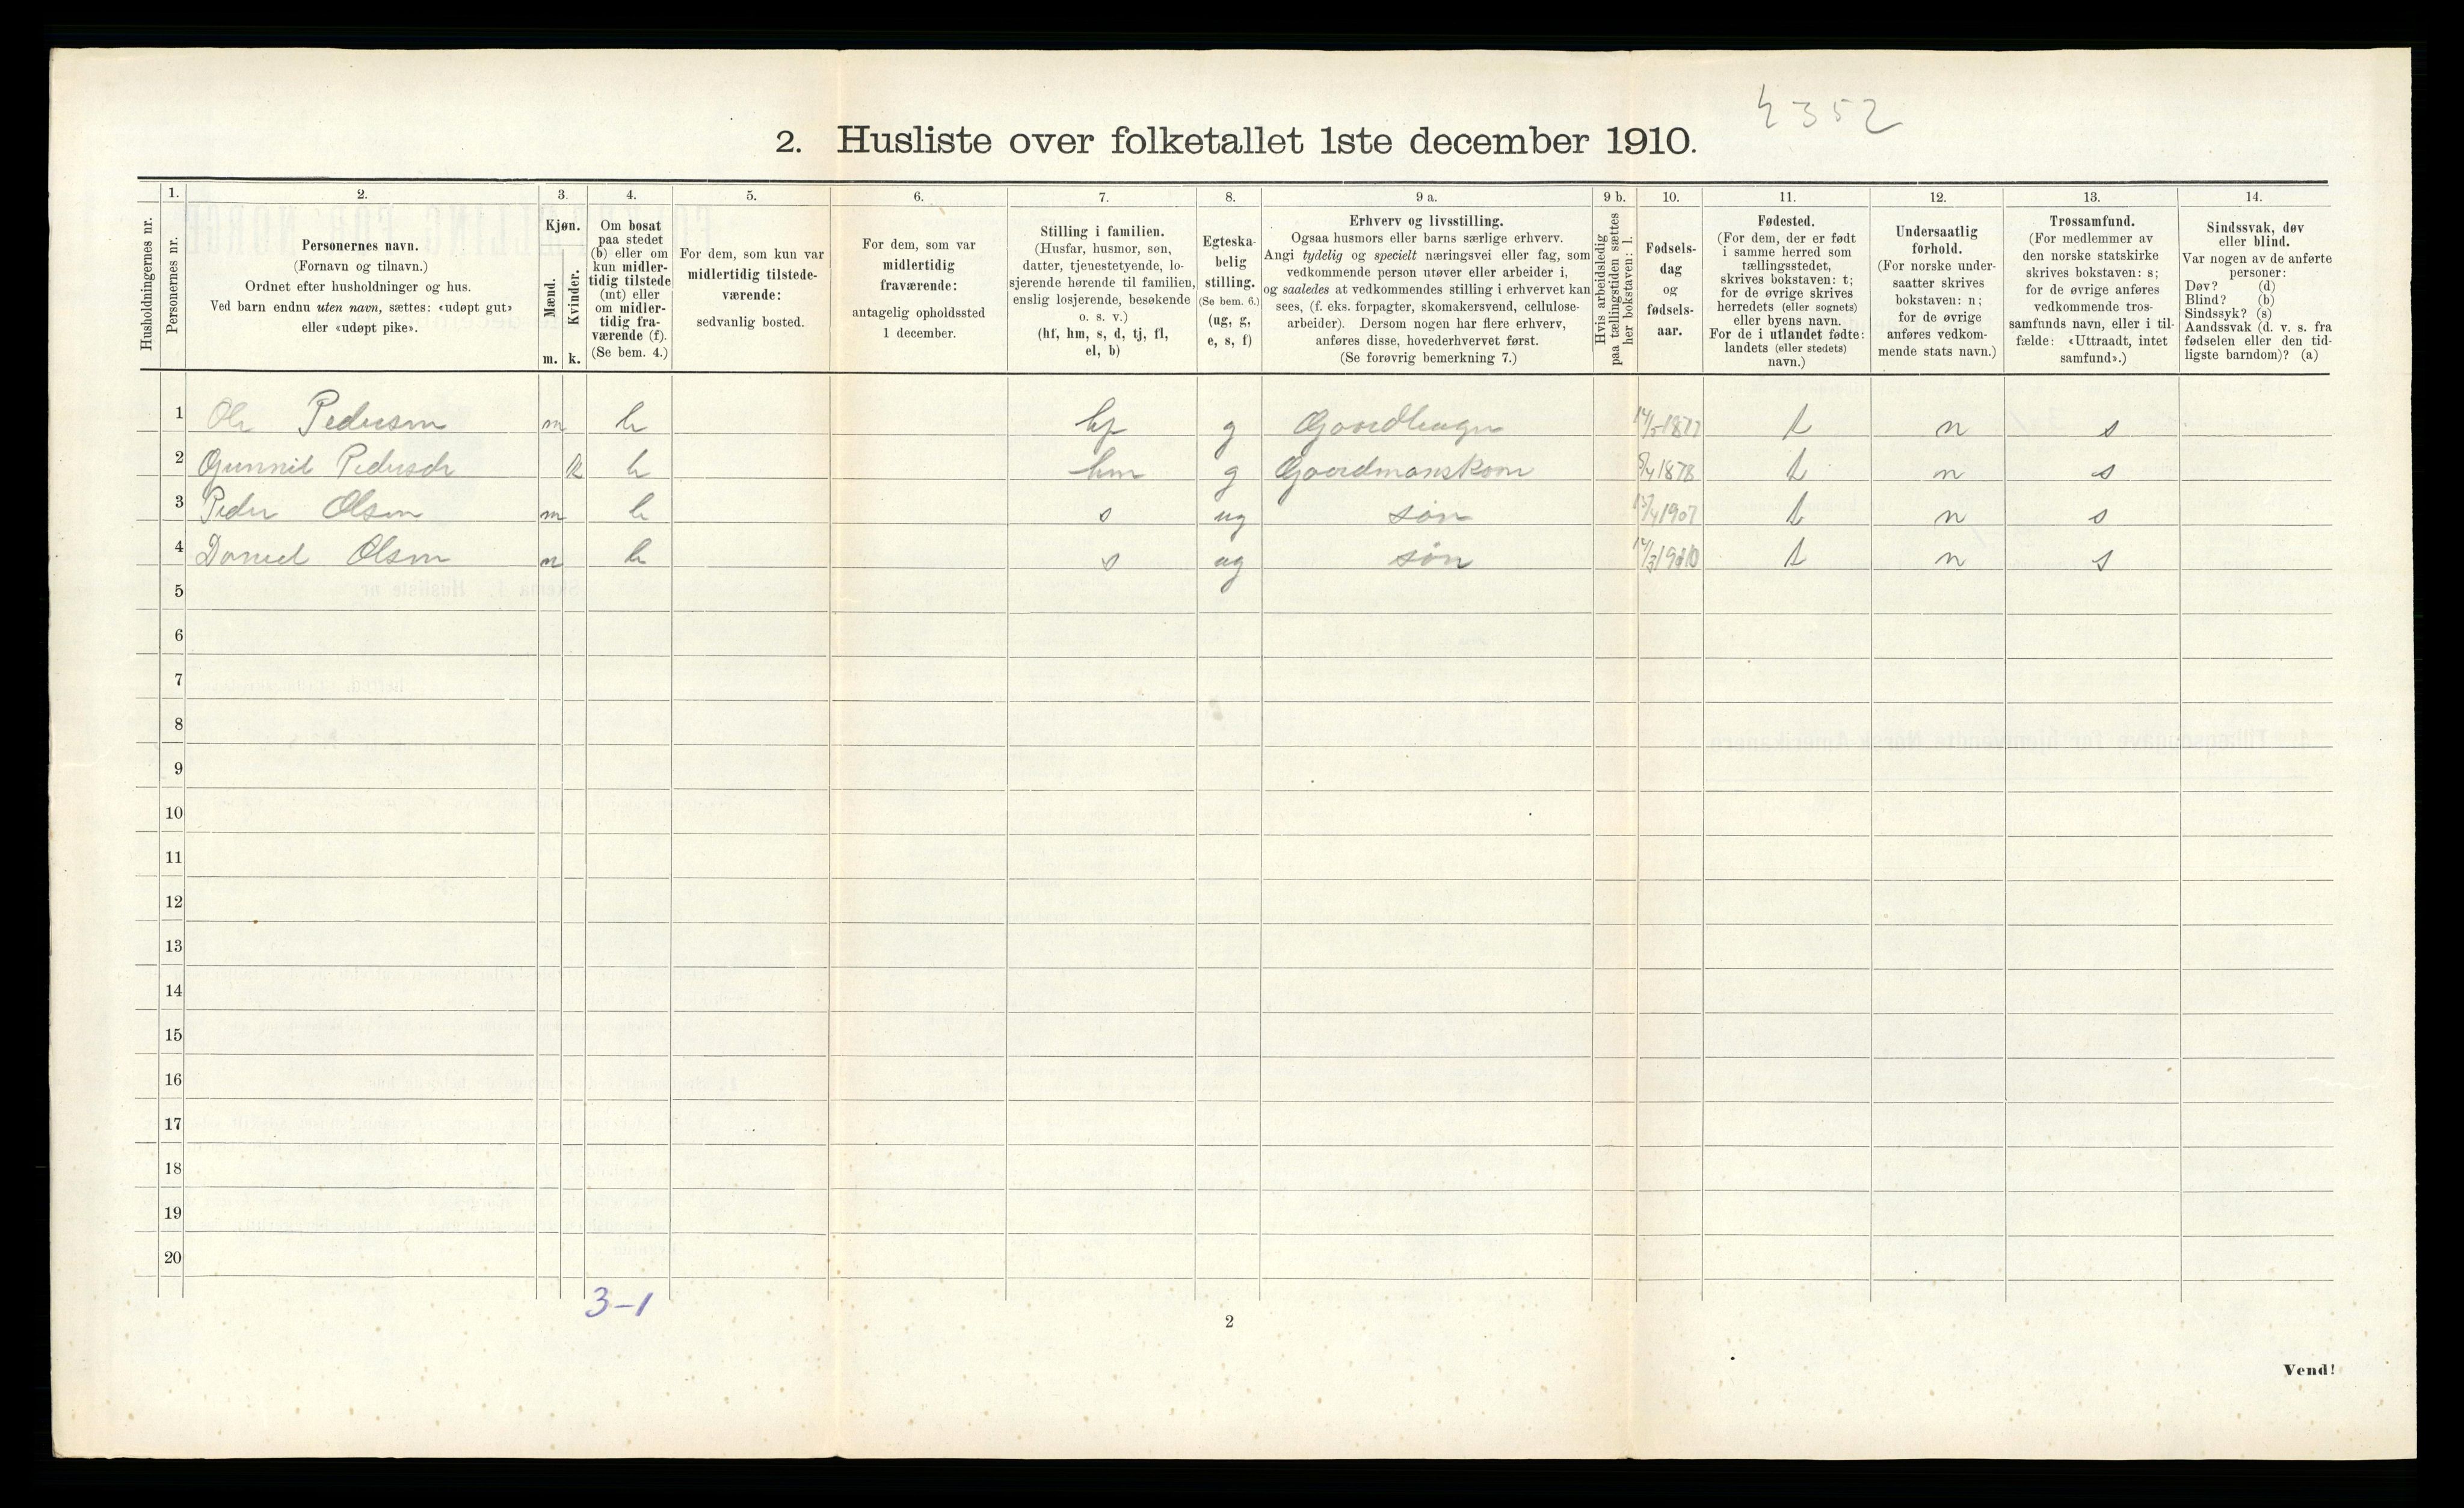 4352
2. Husliste over folketallet 1ste december 1910.
Husholdningernes nr.
1.
Personernes nr.
2.
Personernes navn.
(Fornavn og tilnavn.)
Ordnet efter husholdninger og hus.
Ved barn endnu uten navn, sættes: «udøpt gut»
eller «udøpt pike».
3.
Kjøn.
Mænd.
Kvinder.
m. k.
4.
Om bosat
paa stedet
(b) eller om
kun midler-
tidig tilstede
(mt) eller
om midler-
tidig fra-
værende (f).
(Se bem. 4.)
5.
For dem, som kun var
midlertidig tilstede-
værende:
sedvanlig bosted.
6.
For dem, som var
midlertidig
fraværende:
antagelig opholdssted
1 december.
7.
Stilling i familien.
(Husfar, husmor, søn,
datter, tjenestetyende, lo-
sjerende hørende til familien,
enslig losjerende, besøkende
o. s. v.)
(hf, hm, s, d, tj, fl,
el, b)
8.
Egteska-
belig
stilling.
(Se bem. 6.)
(ug, g,
e, s, f)
9 a.
Erhverv og livsstilling.
Ogsaa husmors eller barns særlige erhverv.
Angi tydelig og specielt næringsvei eller fag, som
vedkommende person utøver eller arbeider i,
og saaledes at vedkommendes stilling i erhvervet kan
sees, (f. eks. forpagter, skomakersvend, cellulose-
arbeider). Dersom nogen har flere erhverv,
anføres disse, hovederhvervet først.
(Se forøvrig bemerkning 7.)
9 b.
Hvis arbeidsledig
paa tællingstiden sættes
her bokstaven: l.
10.
Fødsels-
dag
og
fødsels-
aar.
11.
Fødested.
(For dem, der er født
i samme herred som
tællingsstedet,
skrives bokstaven: t;
for de øvrige skrives
herredets (eller sognets)
eller byens navn.
For de i utlandet fødte:
landets (eller stedets)
navn.)
12.
Undersaatlig
forhold.
(For norske under-
saatter skrives
bokstaven: n;
for de øvrige
anføres vedkom-
mende stats navn.)
13.
Trossamfund.
(For medlemmer av
den norske statskirke
skrives bokstaven: s;
for de øvrige anføres
vedkommende tros-
samfunds navn, eller i til-
fælde: «Uttraadt, intet
samfund».)
14.
Sindssvak, døv
eller blind.
Var nogen av de anførte
personer:
Døv? (d)
Blind? (b)
Sindssyk? (s)
Aandssvak (d. v. s. fra
fødselen eller den tid-
ligste barndom)? (a)
1 Ole Pedersen m b hf g Gaardbruger t n s
2 Gunnil Pedersdr k b hm g Gaardmanskone 8/4 1878 t n s
3 Peder Olsen m b s ug søn 1907 t n s
4 Daniel Olsen m b s ug søn t n s
5
6
7
8
9
10
11
12
13
14
15
16
17
18
19
20
3-1
2
Vend!